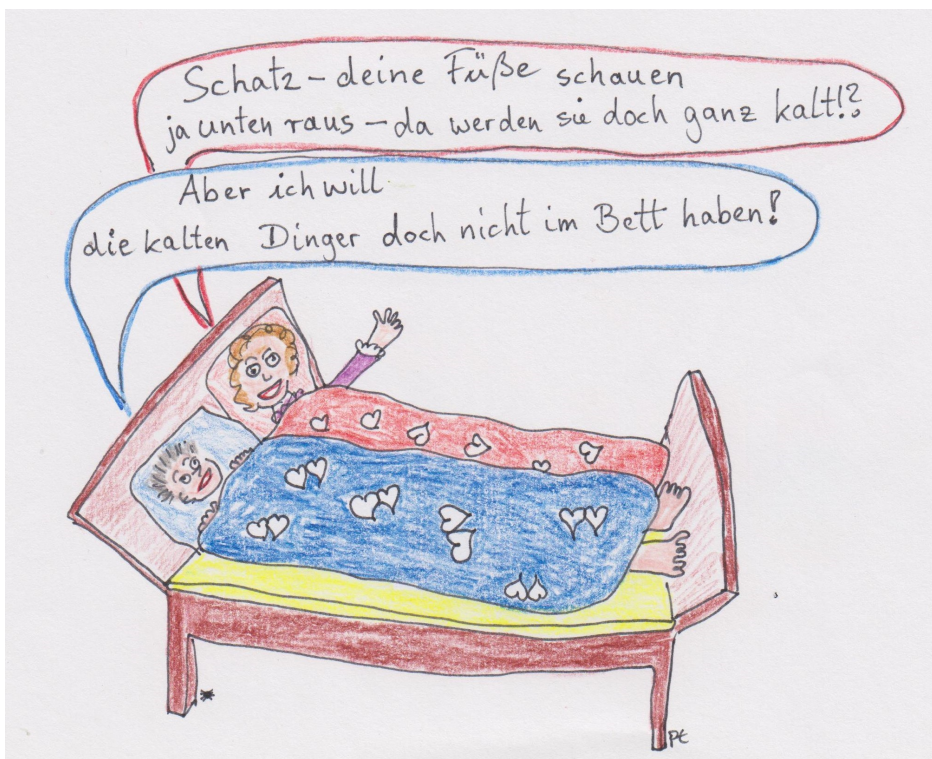 Schatz – deine Füße schauen
ja unten raus – da werden sie doch ganz kalt!?
Aber ich will
die kalten Dinger doch nicht im Bett haben!
PE